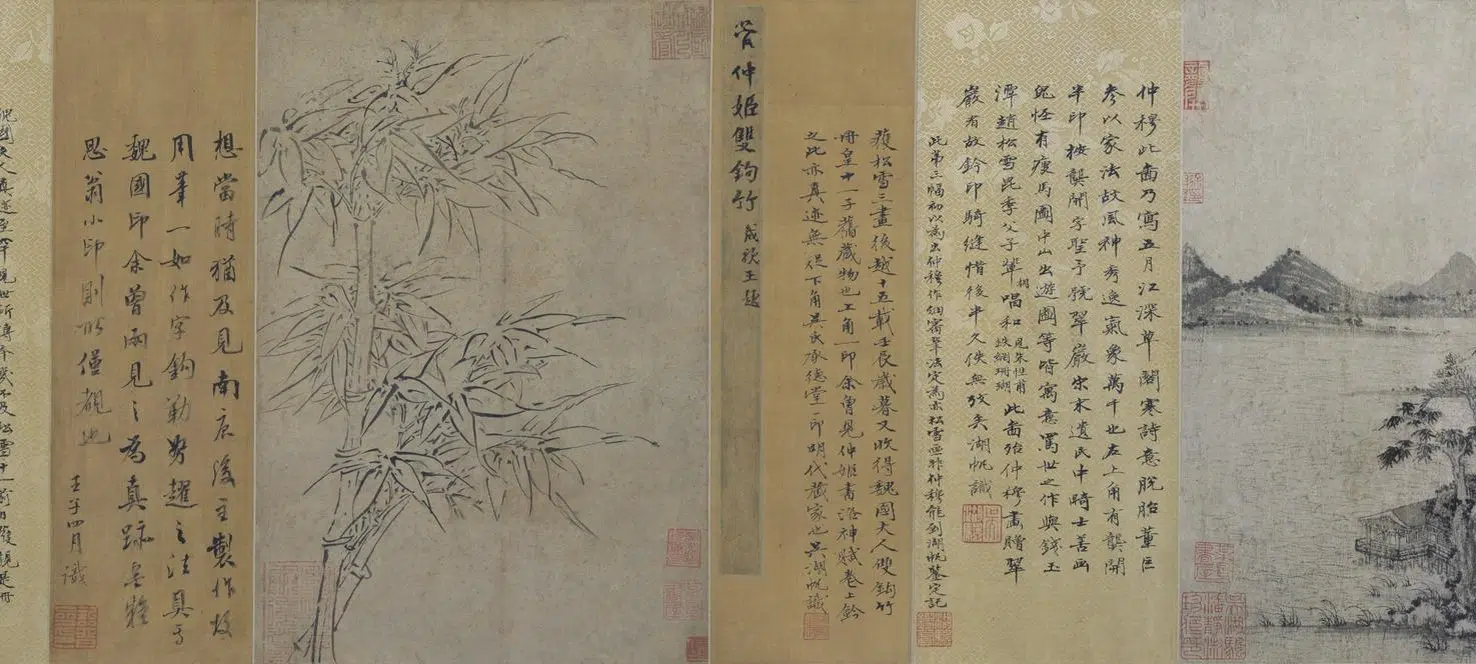 仲穆此啚乃寫五月江深草閣寒詩意脫胎董巨
參以家法故風神秀逸氣象萬千也左上角有龔開
半印按龔開字聖予號翠巖宋末遺民中騎士善画
鬼怪有瘦馬圖中山出遊圖等皆寓意罵世之作與錢玉
潭趙松雪昆季父子輩相唱和見朱性甫鐵網珊瑚此啚殆仲穆畫贈翠
巖者故鈐印騎縫惜後半久佚無攷矣湖帆識
此第三幅初以為出仲穆作細審筆法定為亦松雪画非仲穆能到湖帆鑒定記
管仲姬雙鉤竹
獲松雪三畫後越十五載壬辰歲暮又收得魏國夫人雙鉤竹
冊皇十一子舊藏物也上角一印余曾見仲姬書洛神賦卷上鈐
之此亦真迹無疑下角吳氏承德堂一印明代藏家也吳湖帆識
想當時猶及見南唐後主製作故
用筆一如作字鉤勒努趯之法具焉
魏國印余曾兩見之為真跡無疑
思翁小印則所僅覩也
壬子四月識